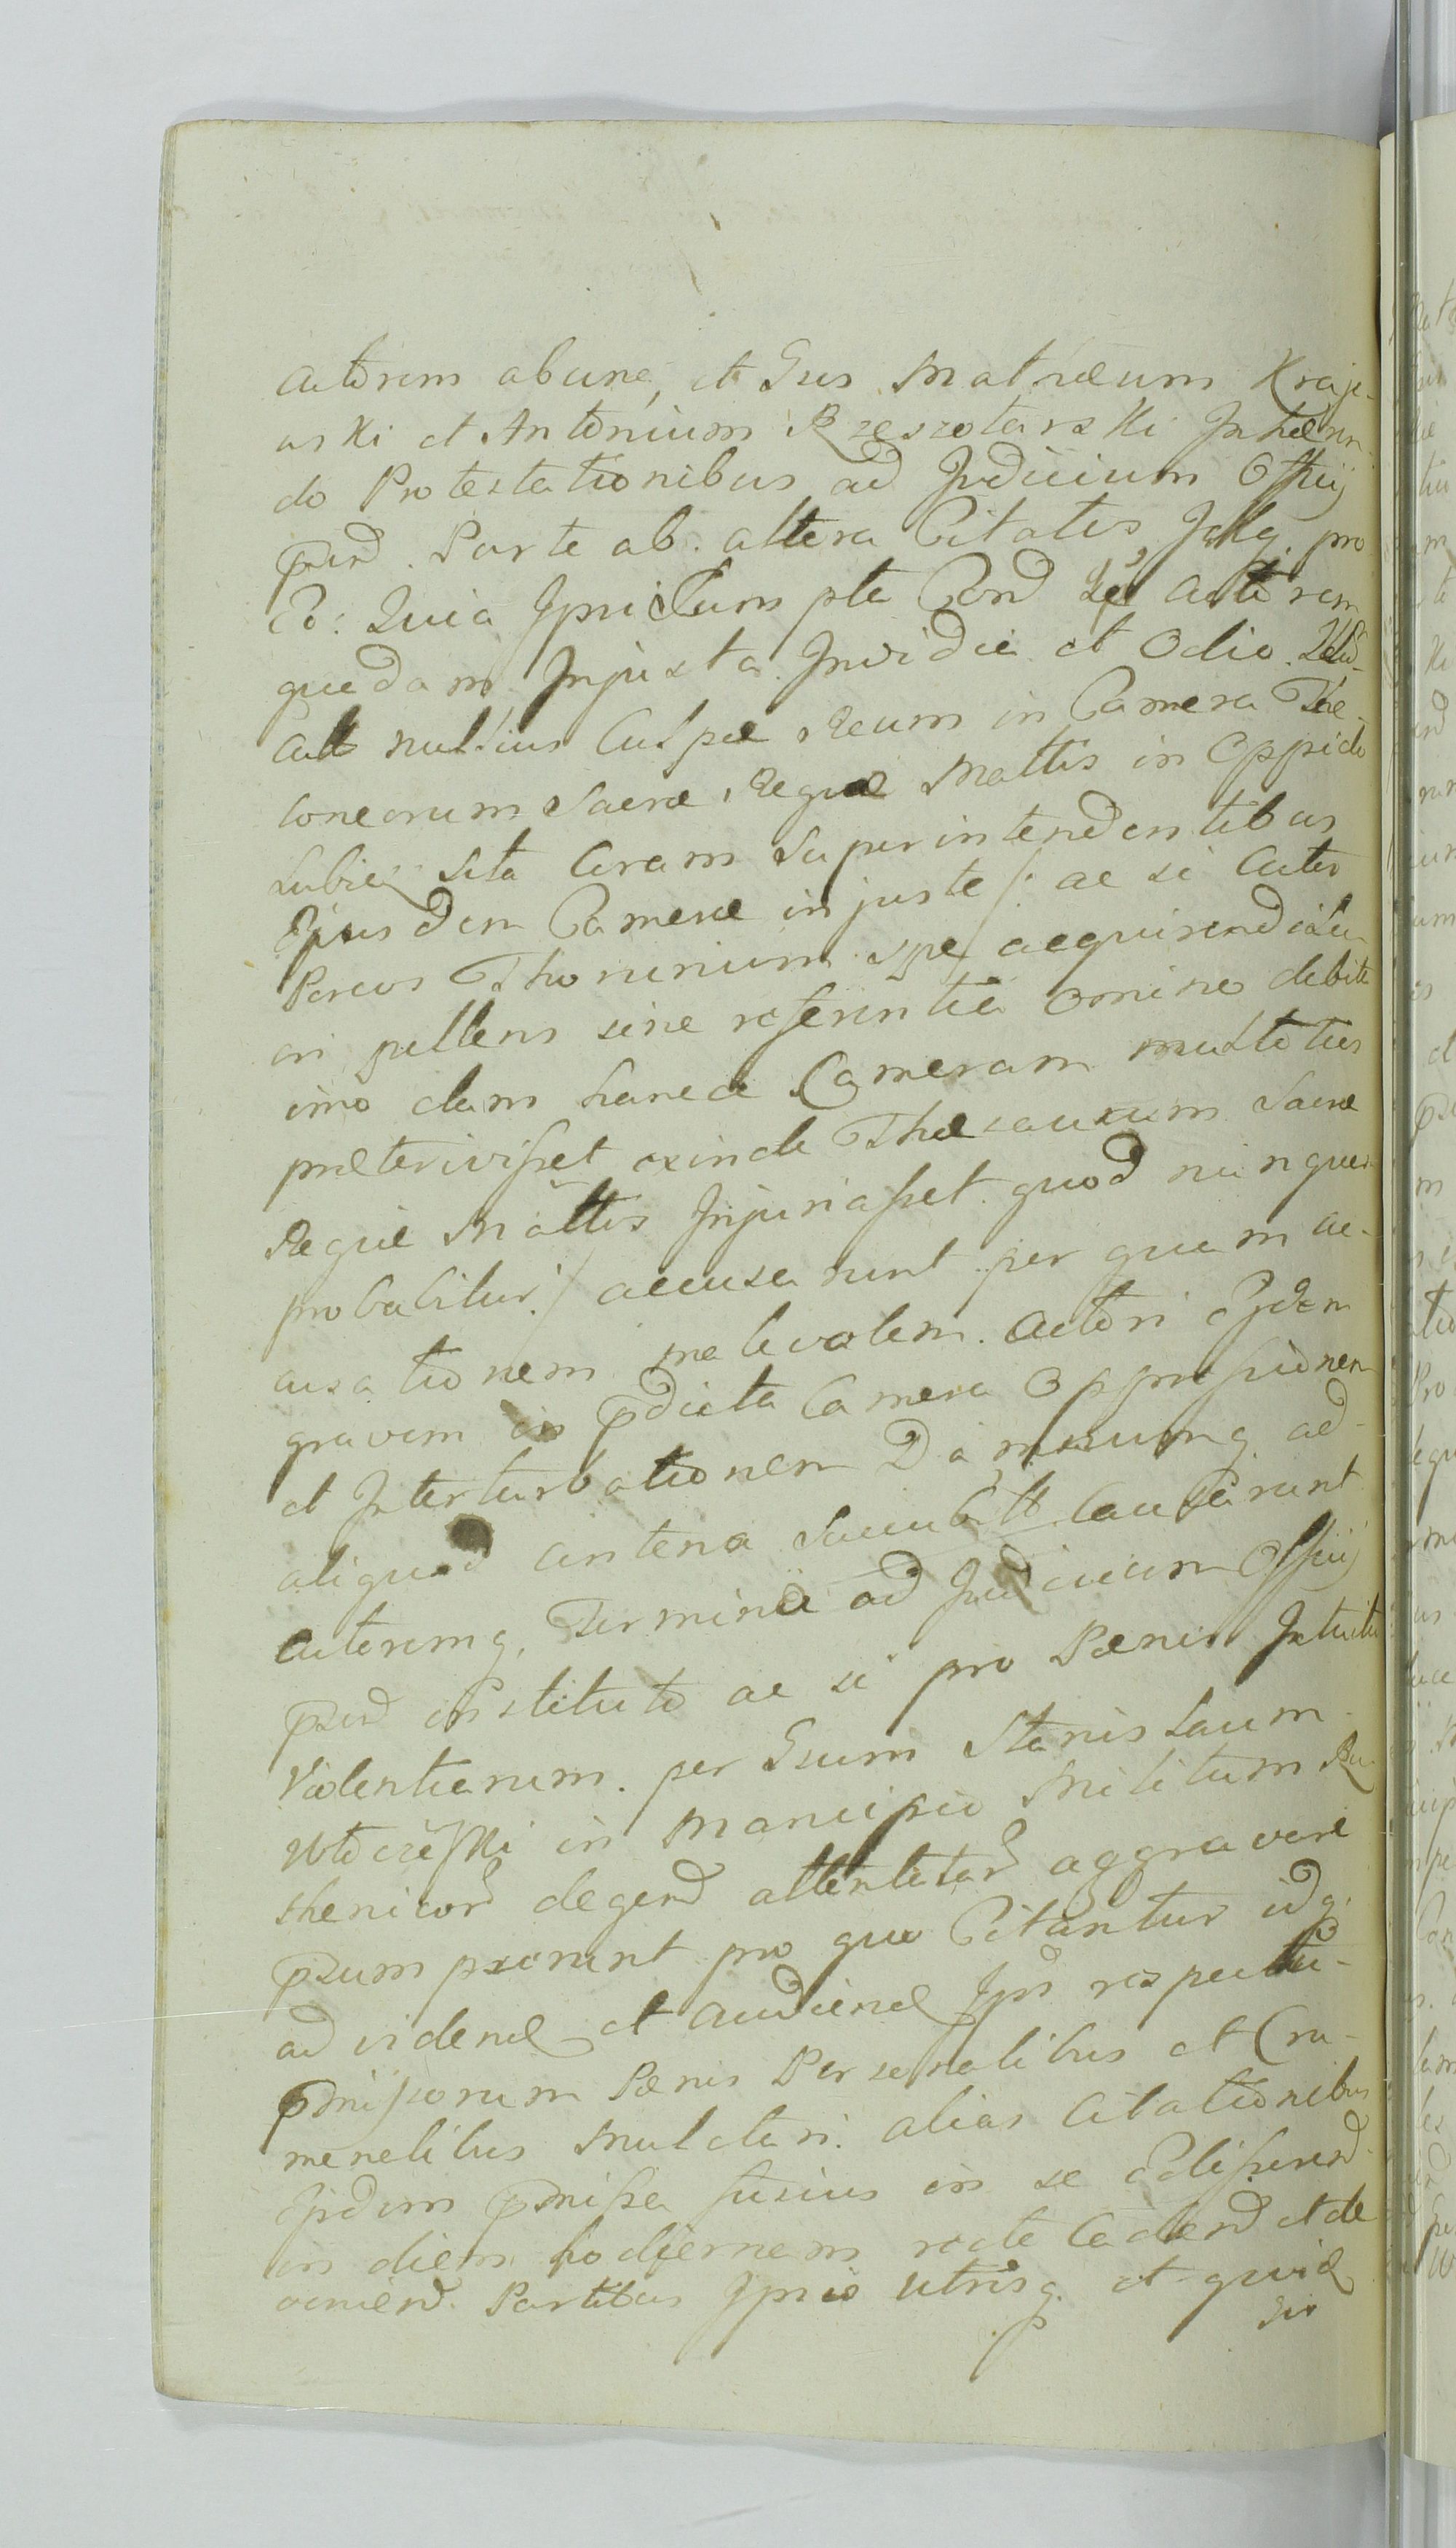 Actorem ab una, et Gsos Mathæum Kraje-
wski et Antonium Rzeszotarski Inhæren-
do Protestationibus ad Judicium Offcij
pnnd Parte ab altera Citatos Idq pro
Eo: Quia Ipsi dum pte Cond Actorem
quadam Injusta Invidia et Odio
Act nullius Culpæ Reum in Camera The-
loneorum Sacræ Regiæ Mattis in Oppido
Lubicz sita Coram Superintendentibus
Ejusdem Cameræ injuste /: ac si Actor
Porcos Thorunium spe acquirendi Lu-
cri pellens sine referentia omnino debita
imo clam hance Cameram multoties
præterivisset exinde Thæsaurum Sacræ
Regiæ Mattis Injuriasset quod nunquam
probabitur :/ accusarunt per quam ac-
cusationem malevolem Actori Eidem
gravem in pdicta Camera Oppressionem
et Interturbationem Damnumq ad
aliquod centena Causarunt
Actoremq, Termino ad Judicium Offcij
psnd instituto ac si pro Pænis Intuitu
Violentiarum per Gsum Stanislaum
in Mancipio Militum Ru-
thenicor degend attentatar aggravare
psumpserunt pro quo Citantur idq
ad vidend et audiend Ipsos respectu
pmissorum Pænis Personalibus et Cri-
menalibus Mulctari alias Citationibus
Eisdem pmissa fusius in se Edisserend
in diem hodiernem recte Cadend et de-
veniend Partibus Ipsis utrisq et quid